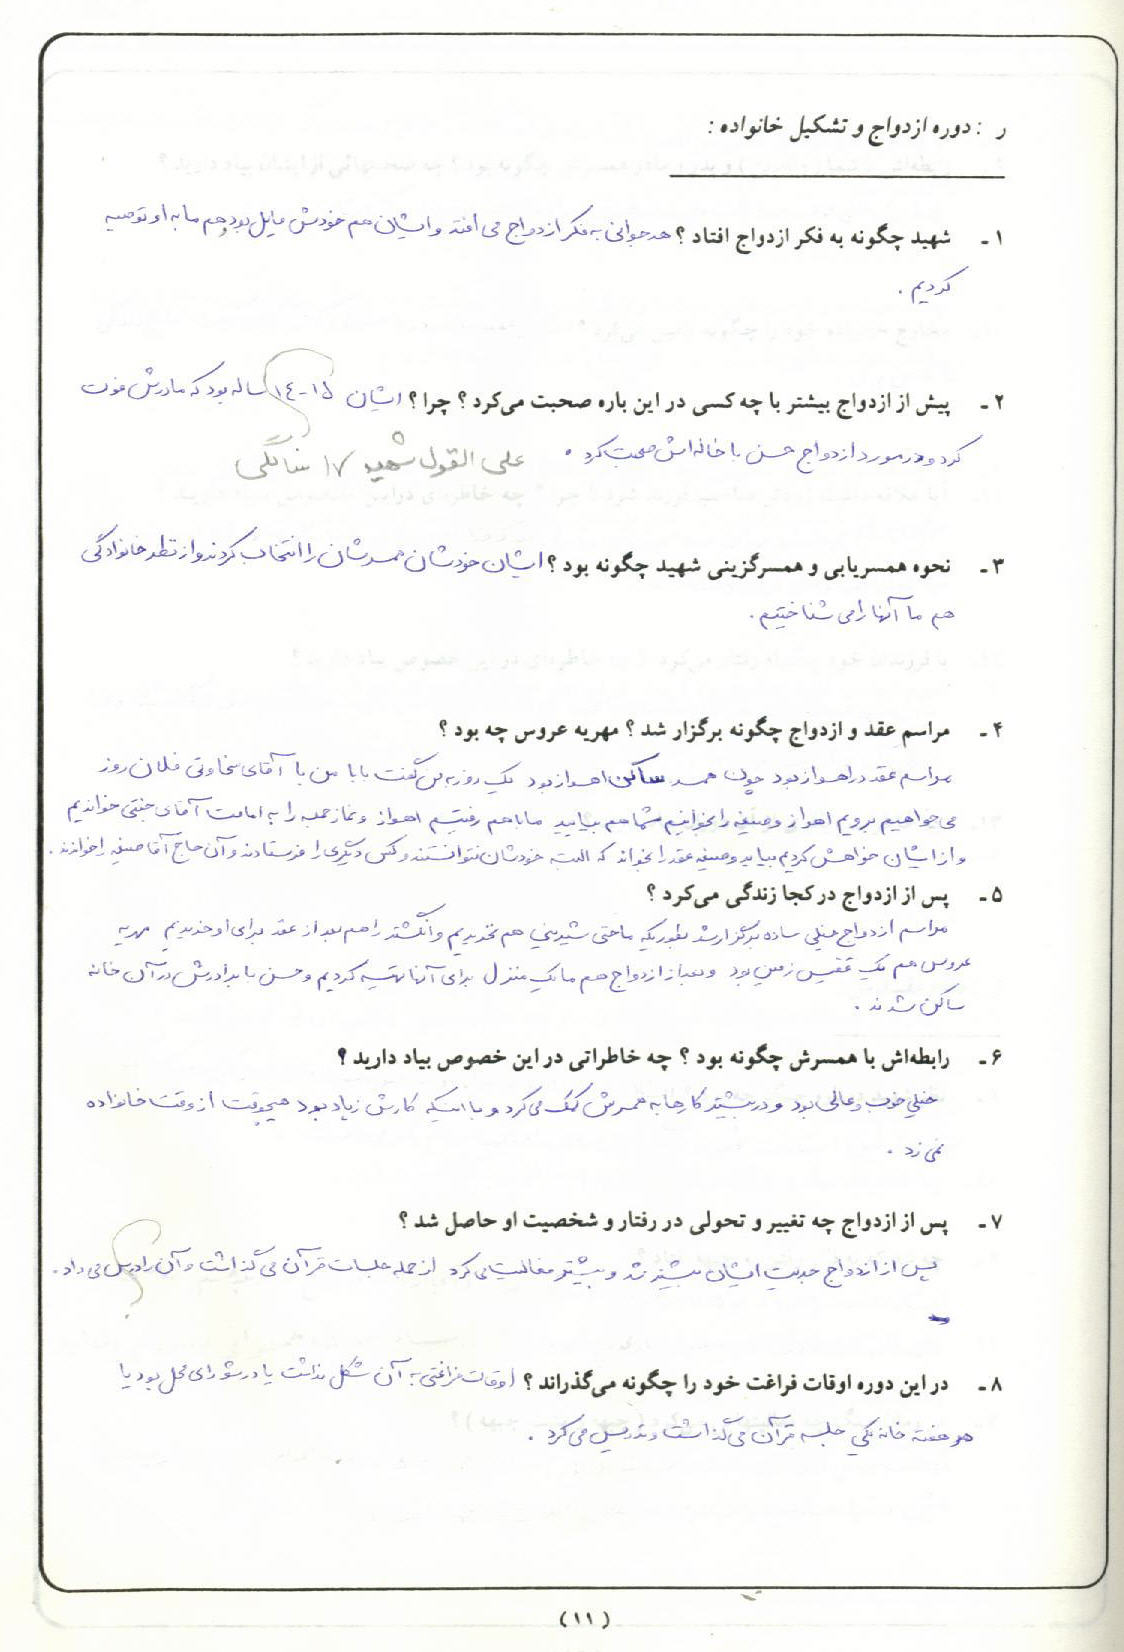 ر : دوره ازدواج و تشکیل خانواده :
۱ - شهید چگونه به فکر ازدواج افتاد ؟ هر جوانی به فکر ازدواج می افتد و ایشان هم خودش مایل بود و هم ما به او توصیه
کردیم .
۲ - پیش از ازدواج بیشتر با چه کسی در این باره صحبت می‌کرد ؟ چرا ؟ ایشان ۱۵-۱۴ ساله بود که مادرش فوت
کرد و در مورد ازدواج حسن با خاله‌اش صحبت کرد .
علی القول شهید ۱۷ سالگی
۳ - نحوه همسریابی و همسرگزینی شهید چگونه بود ؟ ایشان خودشان همسرشان را انتخاب کردند و از نظر خانوادگی
هم ما آنها را می شناختیم .
۴ - مراسم عقد و ازدواج چگونه برگزار شد ؟ مهریه عروس چه بود ؟
مراسم عقد در اهواز بود چون همسر ساکن اهواز بود یک روز به من گفت بابا من با آقای سخاوتی فلان روز
می خواهیم برویم اهواز و صیغه را بخوانیم شما هم بیایید ما با هم رفتیم اهواز و نماز جمعه را به امامت آقای جنتی خواندیم
و از ایشان خواهش کردیم بیاید و صیغه عقد را بخواند که البته خودشان نتوانستند و کس دیگری را فرستادند و آن حاج آقا صیغه را خواندند .
۵ - پس از ازدواج در کجا زندگی می‌کرد ؟
مراسم ازدواج خیلی ساده برگزار شد بطوریکه ما حتی شیرینی هم نخریدیم و انگشتر را هم بعد از عقد برای او خریدیم مهریه
عروس هم یک قفیس زمین بود و بعد از ازدواج هم ما یک منزل برای آنها تهیه کردیم و حسن با برادرش در آن خانه
ساکن شدند .
۶ - رابطه‌اش با همسرش چگونه بود ؟ چه خاطراتی در این خصوص بیاد دارید ؟
خیلی خوب و عالی بود و در بیشتر کارها به همسرش کمک می کرد و با اینکه کارش زیاد بود هیچوقت از وقت خانواده
نمی زد .
۷ - پس از ازدواج چه تغییر و تحولی در رفتار و شخصیت او حاصل شد ؟
پس از ازدواج جدیت ایشان بیشتر شد و بیشتر فعالیت می کرد از جمله جلسات قرآن می گذاشت و آن را درس می داد .
۸ - در این دوره اوقات فراغت خود را چگونه می‌گذراند ؟ اوقات فراغتی به آن شکل نداشت یا در شورای محل بود یا
هر هفته خانه یکی جلسه قرآن می گذاشت و تدریس می کرد .
(۱۱)